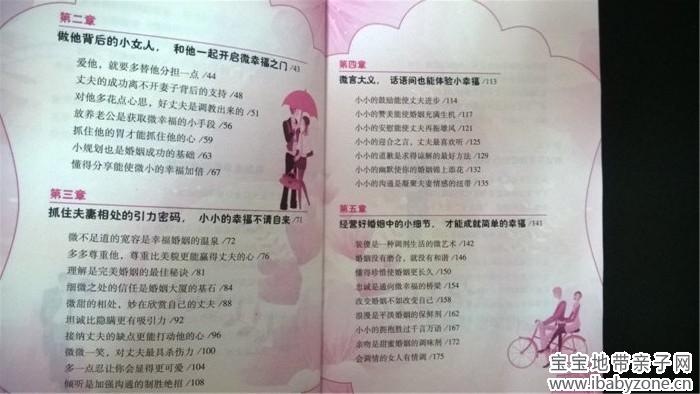 第二章
做他背后的小女人，和他一起开启微幸福之门 /43
爱他，就要多替他分担一点 /44
丈夫的成功离不开妻子背后的支持 /48
对他多花点心思，好丈夫是调教出来的 /51
放养老公是获取微幸福的小手段 /56
抓住他的胃才能抓住他的心 /59
小规划也是婚姻成功的基础 /63
懂得分享能使微小的幸福加倍 /67
第三章
抓住夫妻相处的引力密码，小小的幸福不请自来 /71
微不足道的宽容是幸福婚姻的温泉 /72
多多尊重他，尊重比美貌更能赢得丈夫的心 /76
理解是完美婚姻的最佳秘诀 /81
细微之处的信任是婚姻大厦的基石 /84
微甜的相处，妙在欣赏自己的丈夫 /88
坦诚比隐瞒更有吸引力 /92
接纳丈夫的缺点更能打动他的心 /96
微微一笑，对丈夫最具杀伤力 /100
多一点忍让你会显得更可爱 /104
倾听是加强沟通的制胜绝招 /108
第四章
微言大义，话语间也能体验小幸福 /113
小小的鼓励能使丈夫进步 /114
小小的赞美能使婚姻充满生机 /117
小小的安慰能使丈夫再振雄风 /121
小小的迎合之言，丈夫最喜欢听 /125
小小的道歉是求得谅解的最好方法 /129
小小的幽默使你的婚姻锦上添花 /132
小小的沟通是凝聚夫妻情感的纽带 /135
第五章
经营好婚姻中的小细节，才能成就简单的幸福 /141
装傻是一种调剂生活的微艺术 /142
婚姻没有磨合，就没有和谐 /146
懂得珍惜使婚姻更长久 /150
忠诚是通向微幸福的桥梁 /154
改变婚姻不如改变自己 /158
浪漫是平淡婚姻的保鲜剂 /162
小小的拥抱胜过千言万语 /167
亲吻是甜蜜婚姻的调味剂 /172
会调情的女人有情调 /175
宝宝地带亲子网
www.ibabyzone.cn